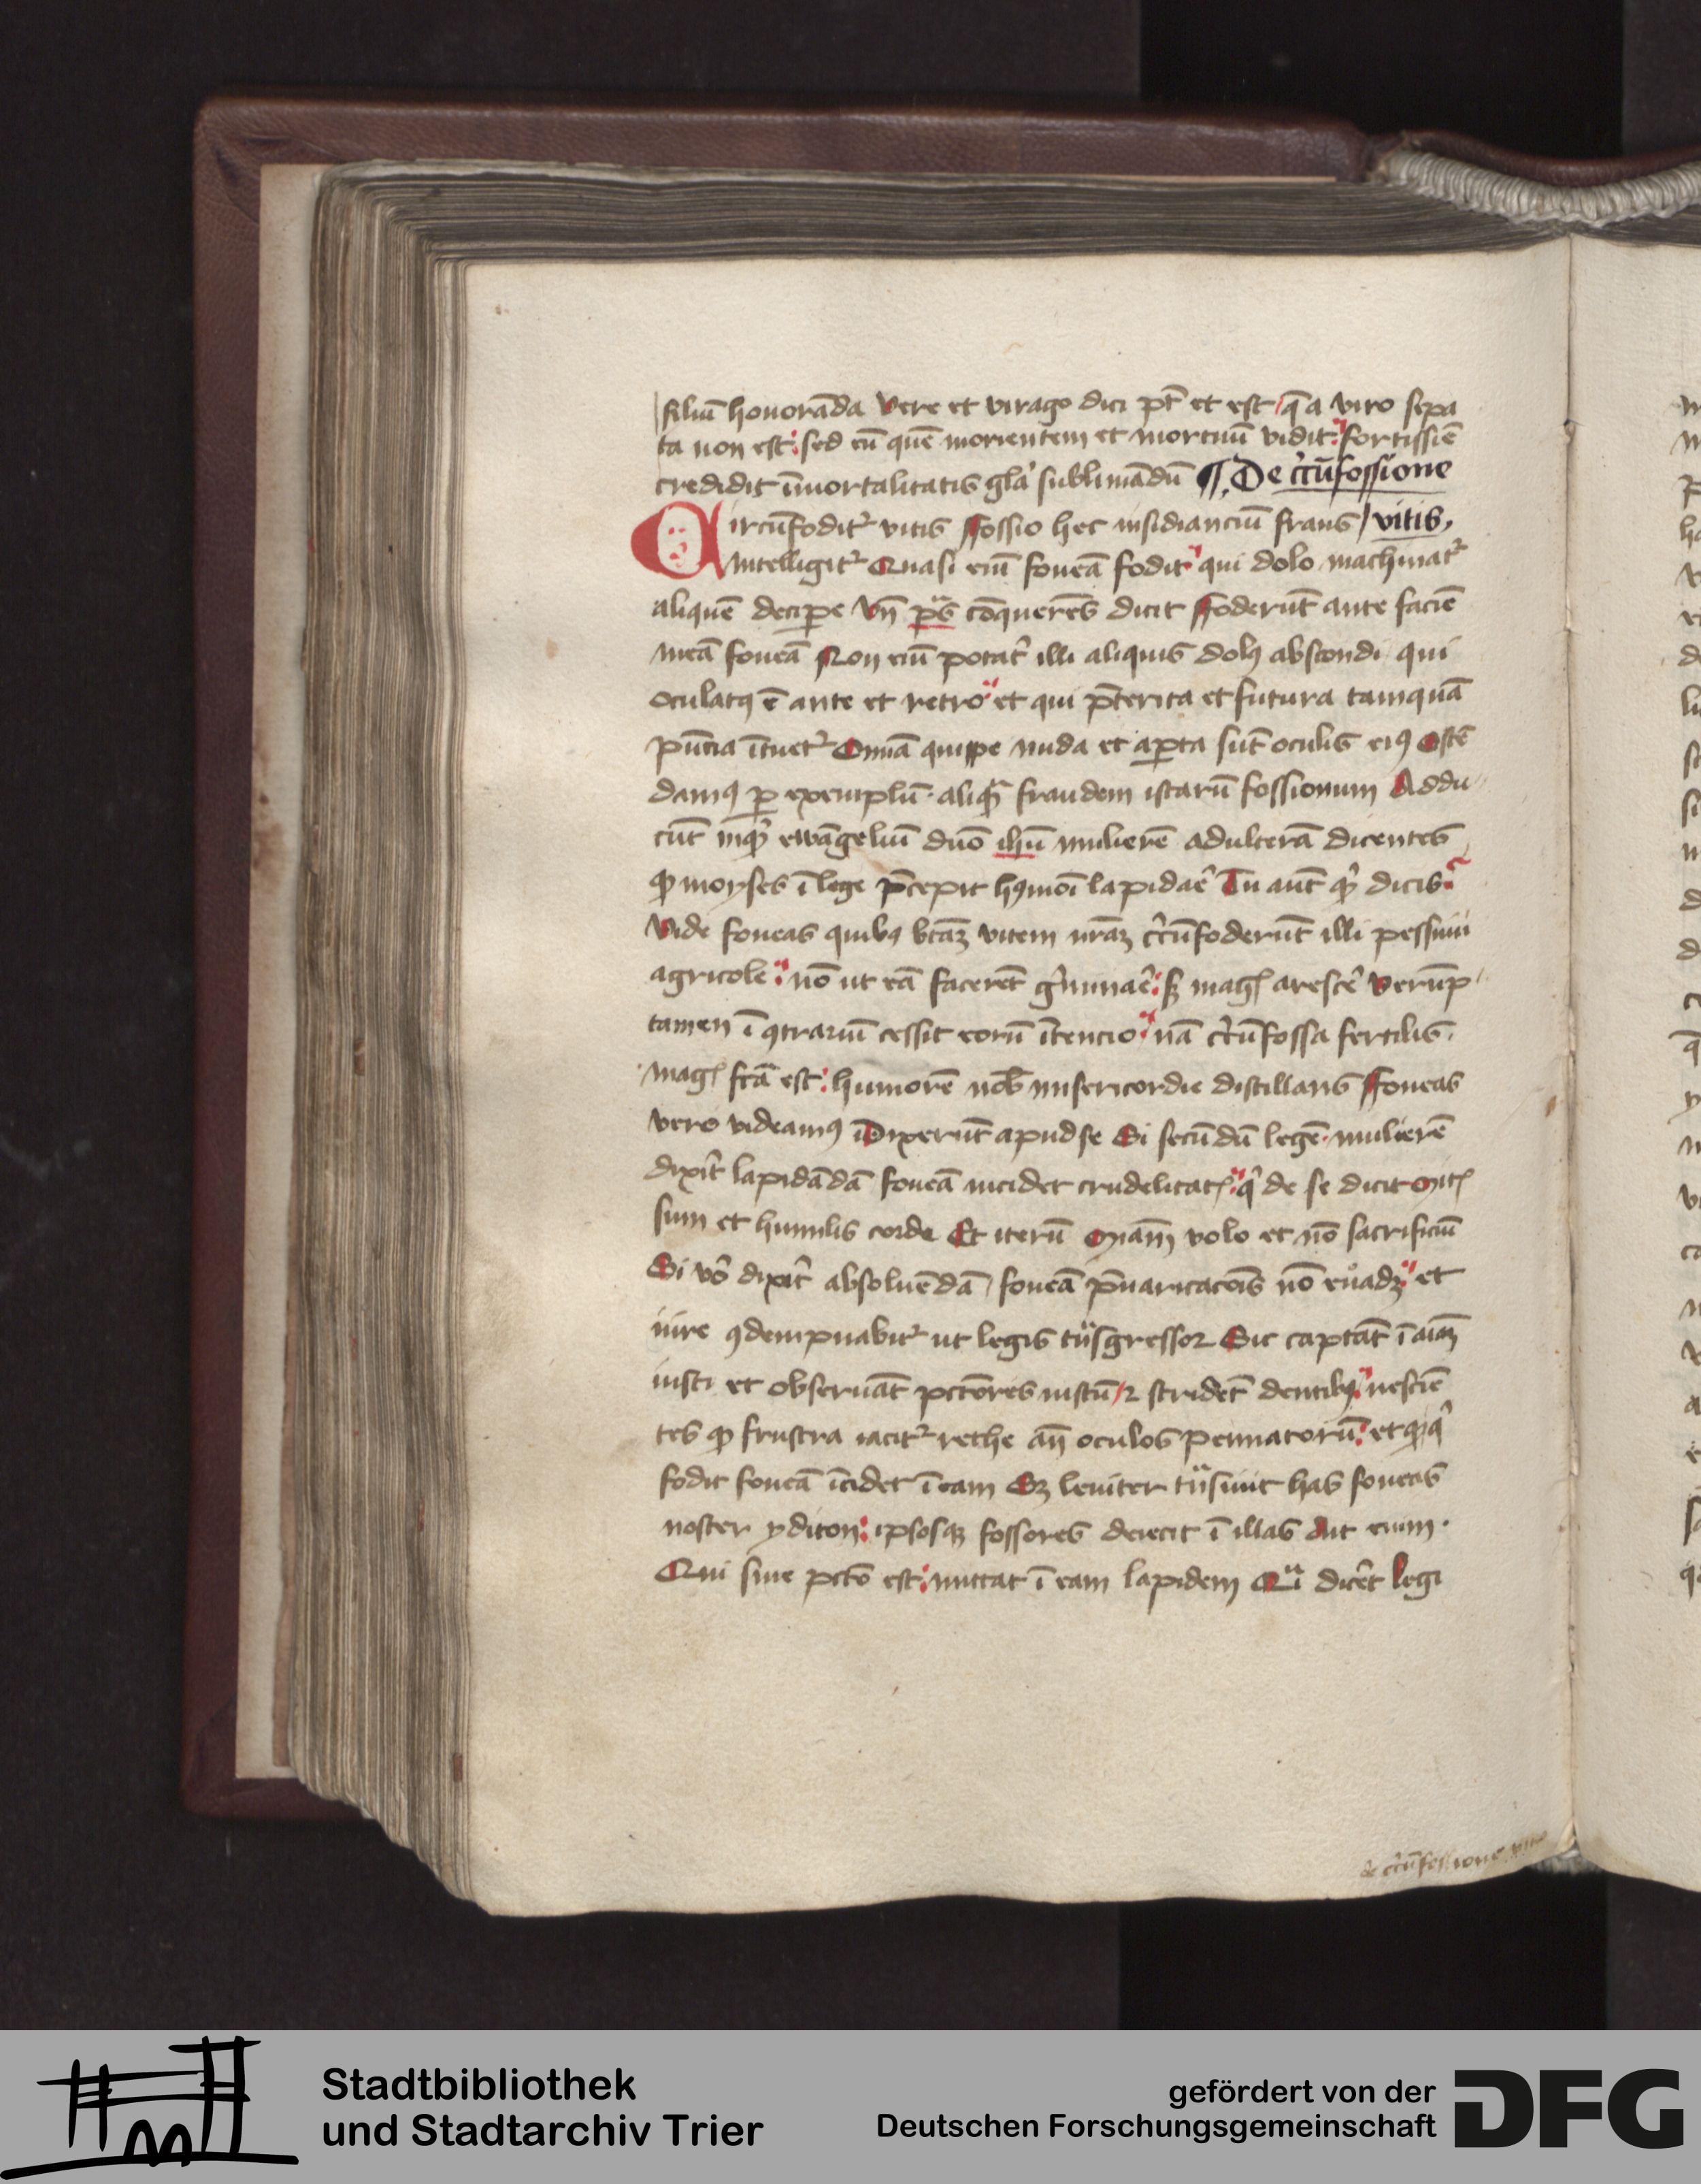 filiū honorāda Vere et virago dici pt̄ et est / q̄ a viro sepa
ta non est : sed eū quē morientem et mortuū vidit : fortissiē
credidit īmortalitatis gl̄a sublimādū ¶ De circūfossione
Circūfodit᷑ vitis ffossio hec insidianciū fraus / vitis
Intelligit᷑ Quasi eniū foueā fodit qui dolo machinat᷑
aliquē decipe Vn̄ ps̄ cōquerēs dicit ffoderūt ante faciē
meā foueā Non eniū potat̄ illi aliquis dolꝰ abscondi qui
oculatꝰ ē ante et retro et qui p̄terita et futura tamquā
pn̄tia ītuet᷑ Omīa quippe nuda et apta sūt oculis eiꝰ Ostē
damꝰ p exemplū aliquā fraudem istarū fossionum Addu
cūt inquit ewāgeliū dn̄o ihū mulierē adulterā dicentes
ꝙ moyses ī lege p̄cepit hꝰmōi lapidare Tu aūt quid dicis
Vide foueas quibꝰ btāꝫ vitem nr̄aꝫ circūfoderūt illi pessimi
agricole : nō ut eā facerēt g̓minare : sꝫ magis arescere Verūp
tamen ī ꝯtrariū cessit eorū ītencio nā circūfossa fertilis
magis fcā est : humorē nob̄ misericordie distillans ffoueas
vero videamꝰ Dixerūt apud se Si secūdū legē mulierē
dixit lapidādā foueā incidet crudelitatis : qui de se dicit Mitis
sum et humilis corde Et iterū Miām volo et nō sacrificiū
Si vo dixit absoluēdā / foueā p̄uaricacōis nō euadꝫ et
iure ꝯdempnabit᷑ ut legis tn̄sgressor Sic captāt ī aiāꝫ
iusti et obseruāt pctōres iustū / ⁊ stridēt dentibꝰ : nesciē
tes ꝙ frustra iacit᷑ rethe an̄ oculos pennatorū : et ꝙ qui
fodit foueā īcidet ī eam Sꝫ leniter tn̄siuit has foueas
noster yditon : ipsosqꝫ fossores deiecit ī illas Ait enim
Qui sine pctō est : mittat ī eam lapidem Quia diceret legi
de circūfossione
Stadtbibliothek
und Stadtarchiv Trier
gefördert von der
Deutschen Forschungsgemeinschaft
DFG